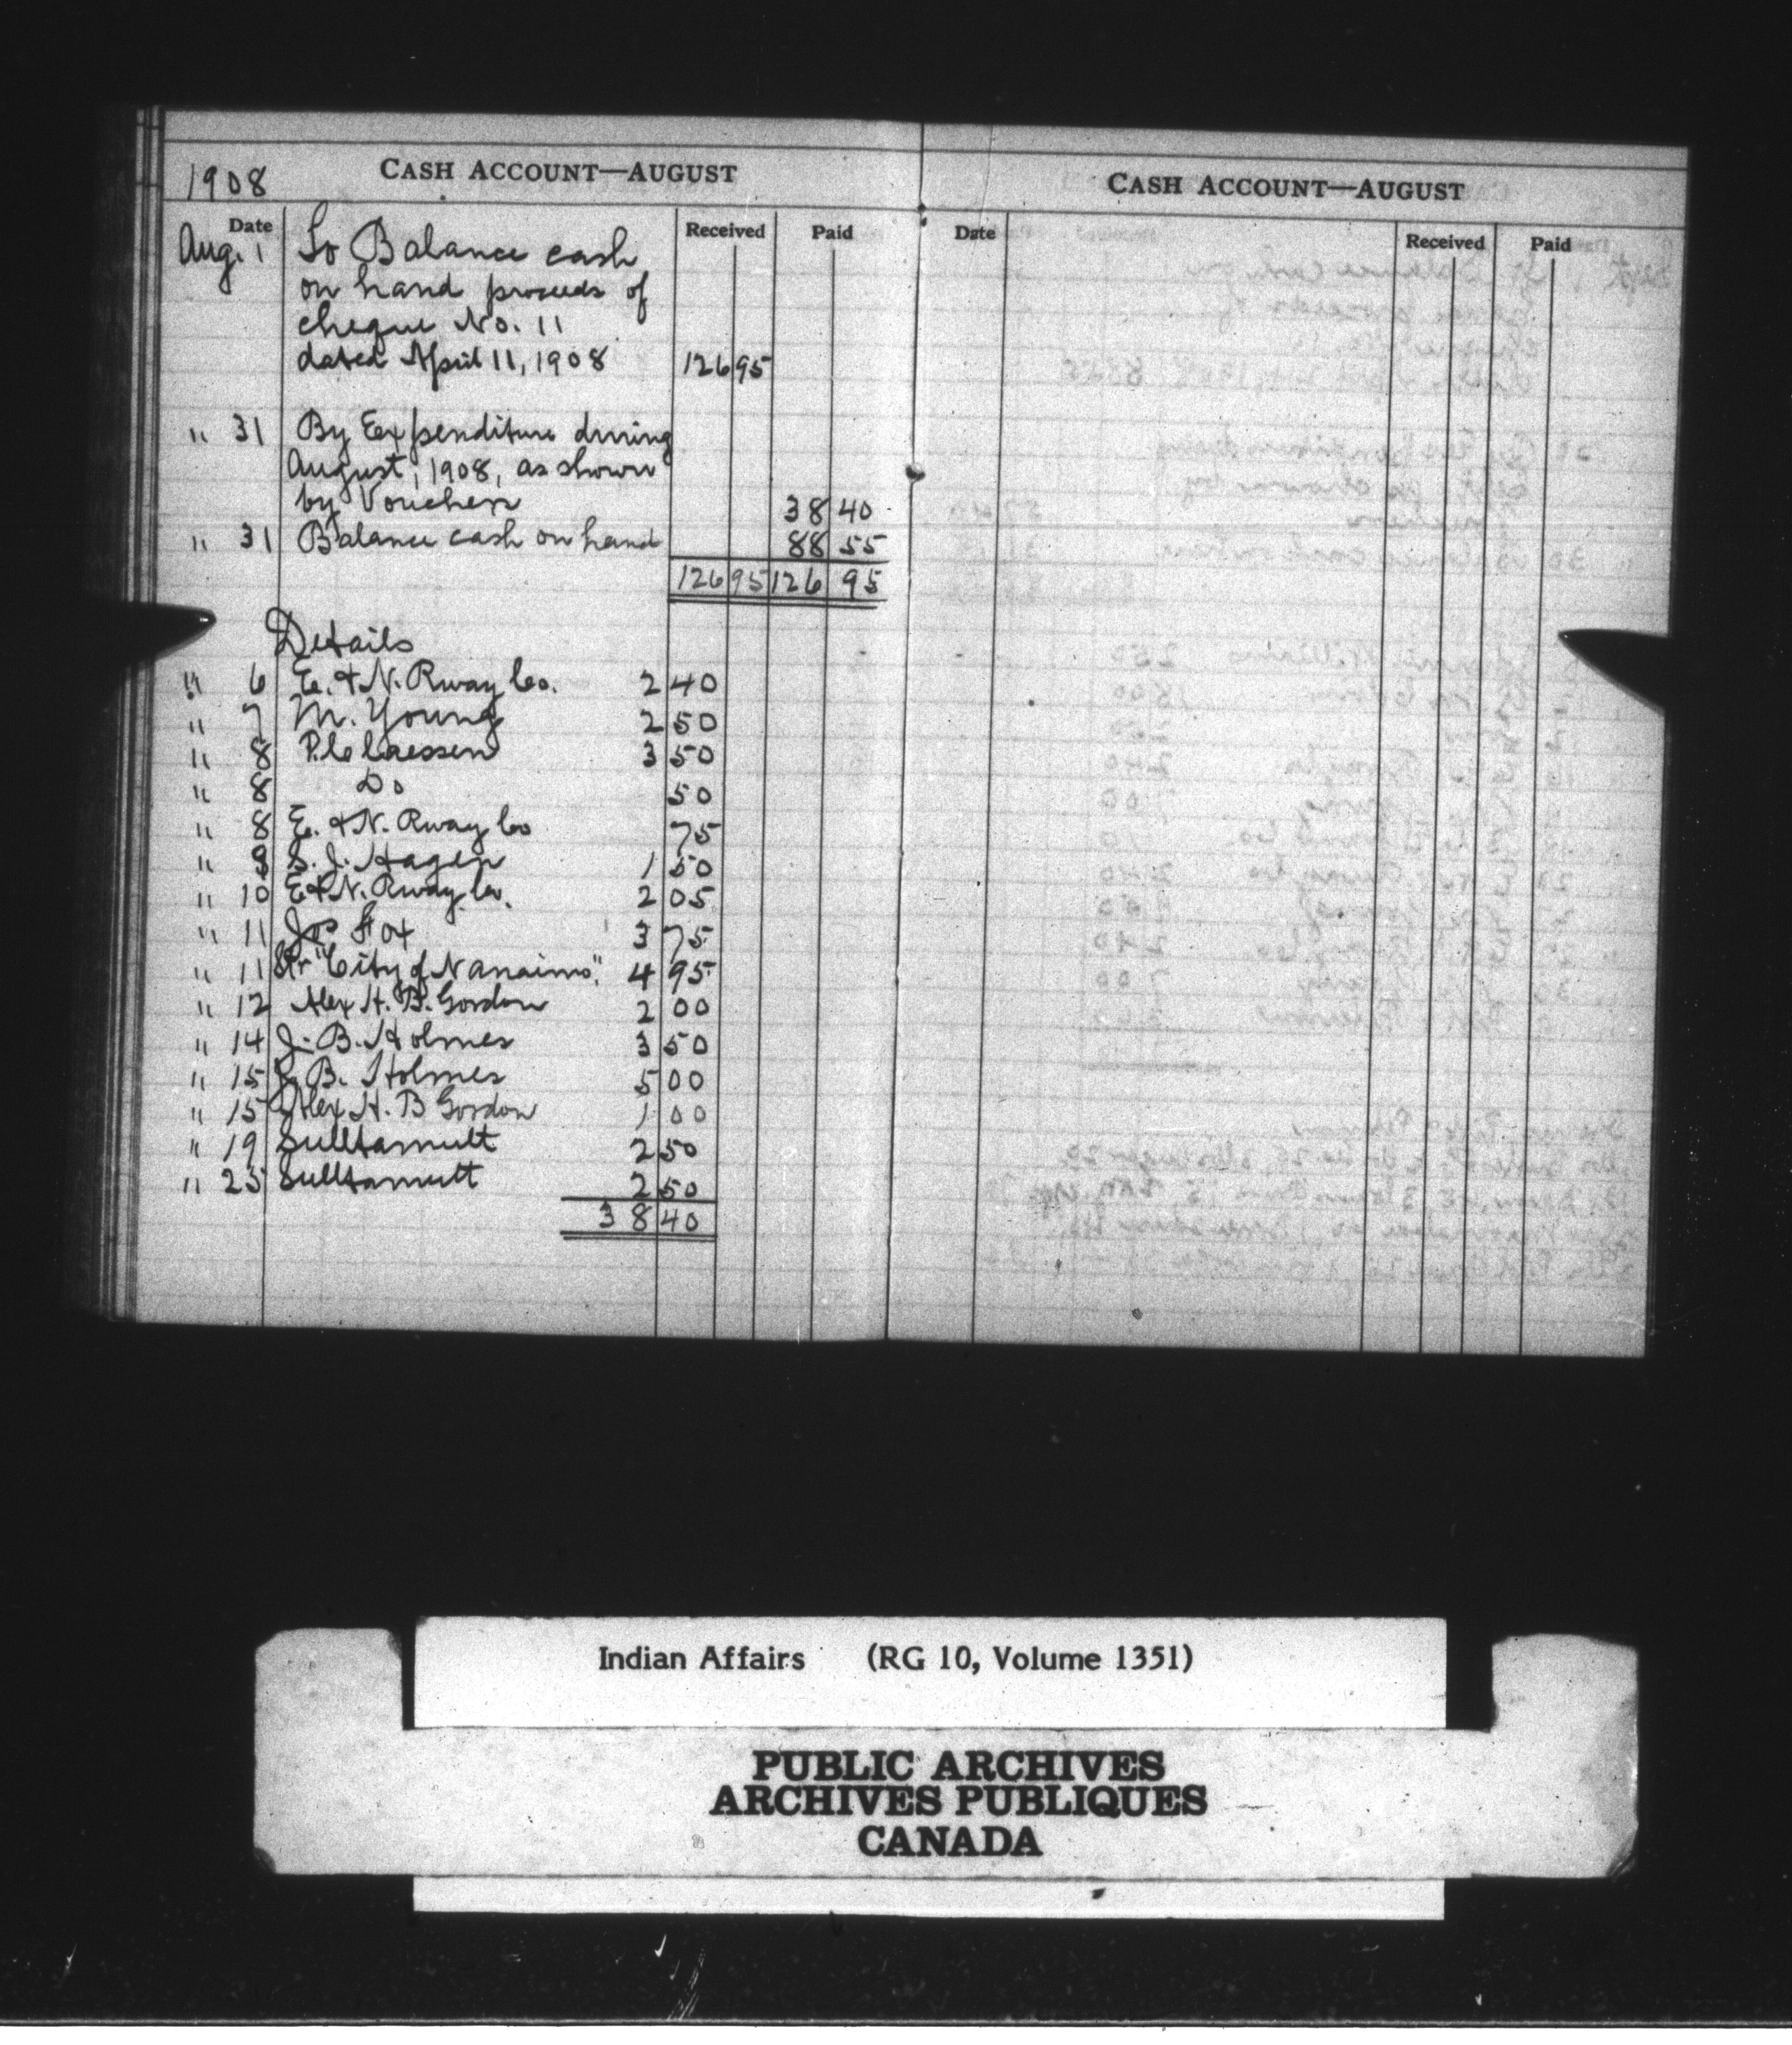 1908 CASH ACCOUNT—AUGUST
Date Received Paid
Aug. 1 To Balance cash
on hand proceeds of
cheque No. 11
dated April 11, 1908 126 95
" 31 By Expenditure during
August, 1908, as shown
by Vouchers 38 40
" 31 Balance cash on hand 88 55
126 95 126 95
Details
" 6 E. & N. Rway Co. 2 40
" 7 M. Young 2 50
" 8 P. C. Claessen 3 50
" 8 Do 50
" 8 E. & N. Rway Co 75
" 9 S. J. Hagen 1 50
" 10 E & N. Rway Co. 2 05
" 11 Jos Fox 3 75
" 11 Str "City of Nanaimo". 4 95
" 12 Alex H. B. Gordon 2 00
" 14 J. B. Holmes 3 50
" 15 J. B. Holmes 5 00
" 15 Alex H. B Gordon 1 00
" 19 Sulltamult 2 50
" 25 Sulltamult 2 50
38 40
CASH ACCOUNT—AUGUST
Date Received Paid
Indian Affairs (RG 10, Volume 1351)
PUBLIC ARCHIVES
ARCHIVES PUBLIQUES
CANADA